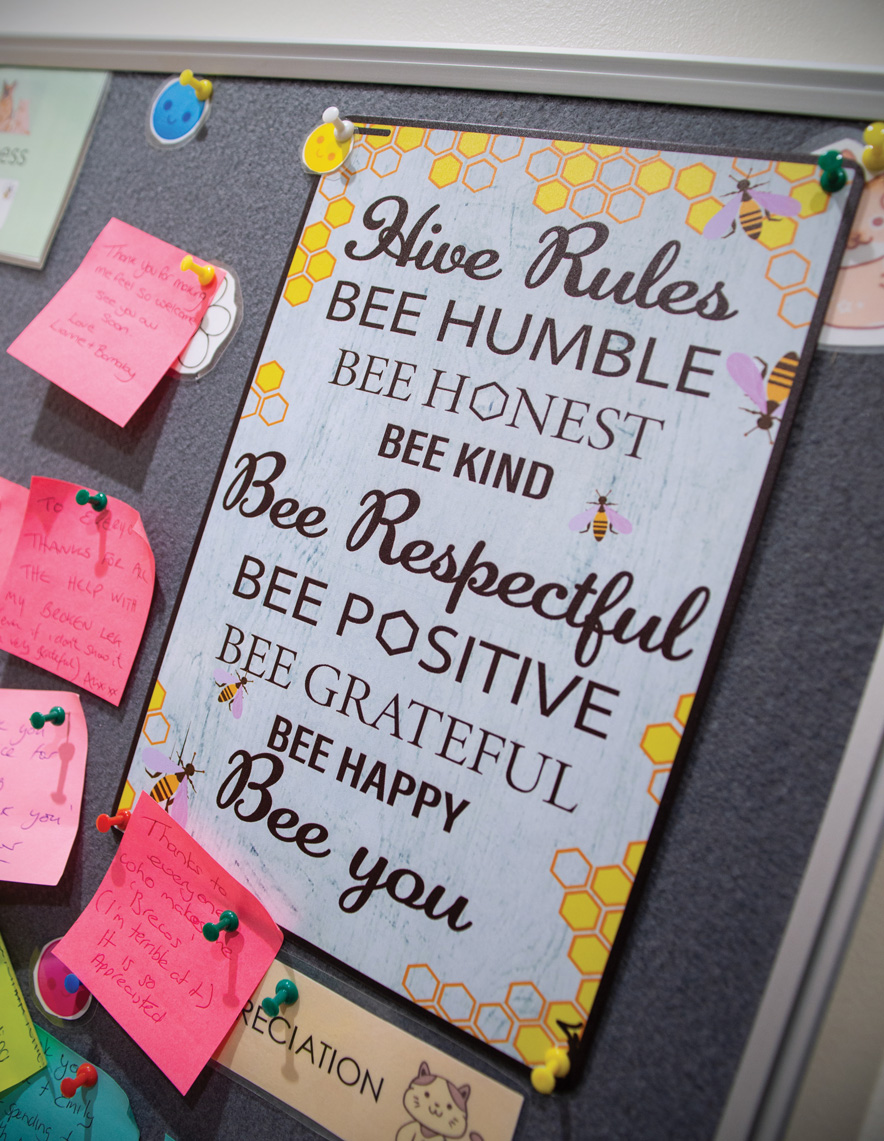 ess
Thank you for making
me feel so welcome
See you all
soon
Love
Lianne + Barnaby
To every
THANKS FOR ALL
THE HELP WITH
MY BROKEN LEG
if i don't show it
very grateful)
you
for
you'
Hive Rules
BEE HUMBLE
BEE HONEST
BEE KIND
Bee Respectful
BEE POSITIVE
BEE GRATEFUL
BEE HAPPY
Bee you
Thanks to
everyone
who makes the
'Brecas'
(I'm terrible at it)
It is so
Appreciated
RECIATION
you
+ Emily
spending